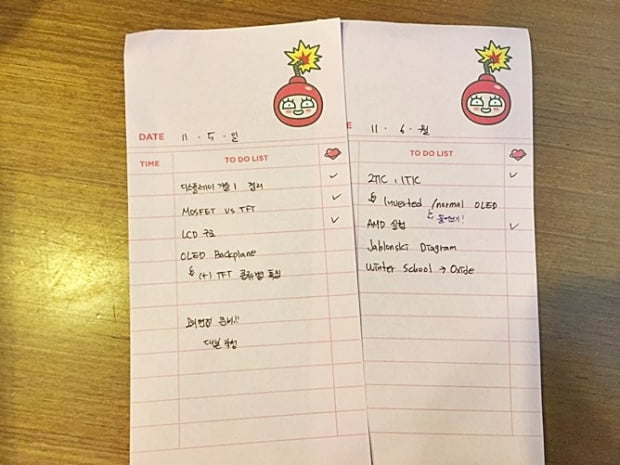 DATE 11 · 5 · 일
TIME TO DO LIST
디스플레이 개론 1 정리
MOSFET vs TFT
LCD 구조
OLED Backplane
↳ (+) TFT 종류별 특징
모의면접 준비!!
대본 작성
E 11 · 6 · 월
TO DO LIST
2T1C, 1T1C
↳ Inverted /normal OLED
AMD 실험
Jablonski Diagram
Winter School → Oxide